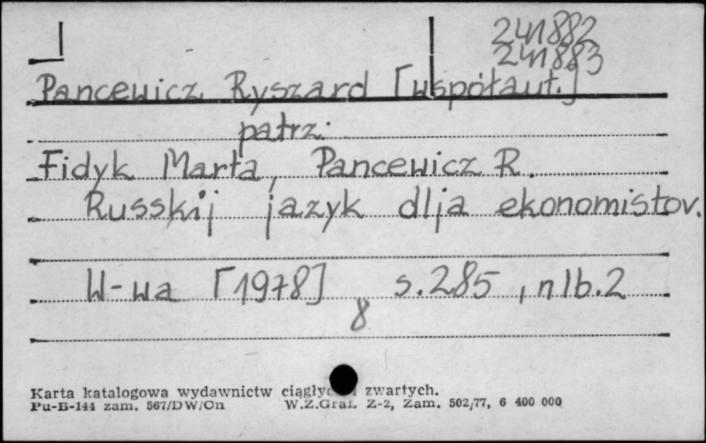 241882
241883
Pancewicz Ryszard [współaut.]
patrz:
Fidyk Marta, Pancewicz R.
Russkij jazyk dlja ekonomistov.
W-wa [1978] s.285, nlb.2
8
Karta katalogowa wydawnictw ciągłych i zwartych.
Pu-B-144 zam. 567/DW/Cn W.Z.Graf. Z-2, Zam. 502/77, 6 400 000